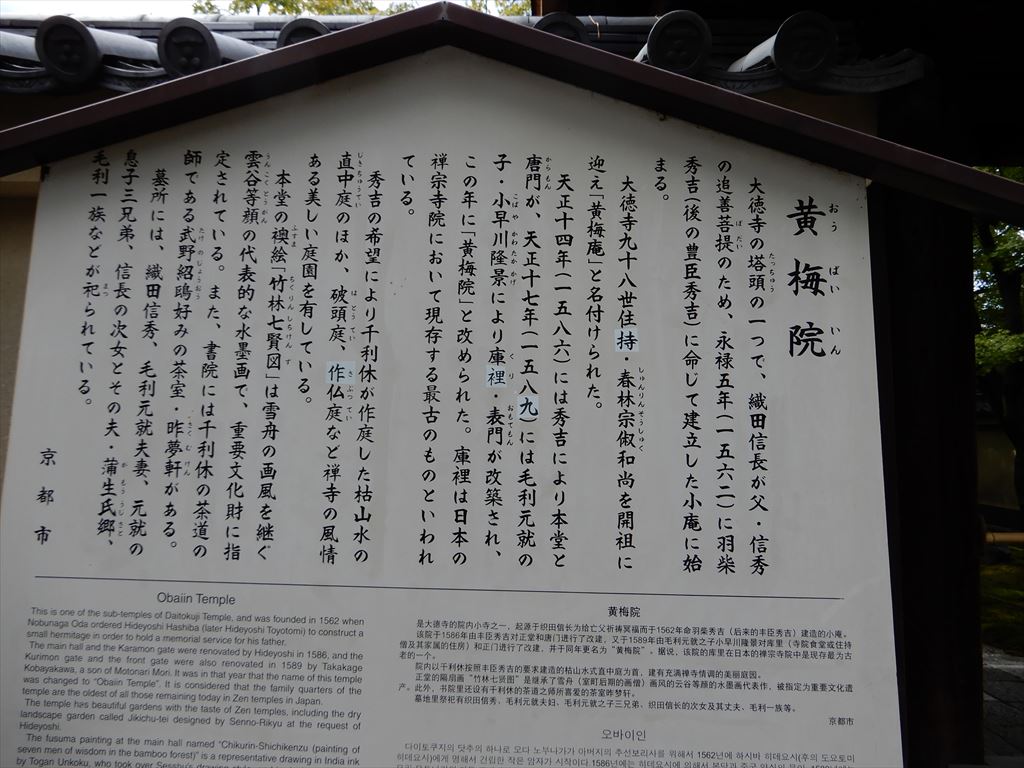 黄梅院
おうばいいん
大徳寺の塔頭の一つで、織田信長が父・信秀
の追善菩提のため、永禄五年(一五六二)に羽柴
秀吉(後の豊臣秀吉)に命じて建立した小庵に始
まる。
大徳寺九十八世住持・春林宗俶和尚を開祖に
迎え「黄梅庵」と名付けられた。
天正十四年(一五八六)には秀吉により本堂と
唐門が、天正十七年(一五八九)には毛利元就の
子・小早川隆景により庫裡・表門が改築され、
この年に「黄梅院」と改められた。庫裡は日本の
禅宗寺院において現存する最古のものといわれ
ている。
秀吉の希望により千利休が作庭した枯山水の
直中庭のほか、破頭庭、作仏庭など禅寺の風情
ある美しい庭園を有している。
本堂の襖絵「竹林七賢図」は雪舟の画風を継ぐ
雲谷等顔の代表的な水墨画で、重要文化財に指
定されている。また、書院には千利休の茶道の
師である武野紹鴎好みの茶室・昨夢軒がある。
墓所には、織田信秀、毛利元就夫妻、元就の
息子三兄弟、信長の次女とその夫・蒲生氏郷、
毛利一族などが祀られている。
京都市
Obaiin Temple
This is one of the sub-temples of Daitokuji Temple, and was founded in 1562 when
Nobunaga Oda ordered Hideyoshi Hashiba (later Hideyoshi Toyotomi) to construct a
small hermitage in order to hold a memorial service for his father.
The main hall and the Karamon gate were renovated by Hideyoshi in 1586, and the
Kurimon gate and the front gate were also renovated in 1589 by Takakage
Kobayakawa, a son of Motonari Mori. It was in that year that the name of this temple
was changed to “Obaiin Temple”. It is considered that the family quarters of the
temple are the oldest of all those remaining today in Zen temples in Japan.
The temple has beautiful gardens with the taste of Zen temples, including the dry
landscape garden called Jikichu-tei designed by Senno-Rikyu at the request of
Hideyoshi.
The fusuma painting at the main hall named “Chikurin-Shichikenzu (painting of
seven men of wisdom in the bamboo forest)” is a representative drawing in India ink
by Togan Unkoku, who took over Sesshu's drawing style
黄梅院
是大德寺的院内小寺之一，起源于织田信长为给亡父祈祷冥福而于1562年命羽柴秀吉（后来的丰臣秀吉）建造的小庵。
该院于1586年由丰臣秀吉对正堂和唐门进行了改建，又于1589年由毛利元就之子小早川隆景对库里（寺院食堂或住持
僧及其家属的住房）和正门进行了改建，并于同年更名为“黄梅院”。据说，该院的库里在日本的禅宗寺院中是现存最为古
老的一个。
院内以千利休按照丰臣秀吉的要求建造的枯山水式直中庭为首，建有充满禅寺情调的美丽庭园。
正堂的隔扇画“竹林七贤图”是继承了雪舟（室町后期的画僧）画风的云谷等颜的水墨画代表作，被指定为重要文化遗
产。此外，书院里还设有千利休的茶道之师所喜爱的茶室昨梦轩。
墓地里祭祀有织田信秀、毛利元就夫妇、毛利元就之子三兄弟、织田信长的次女及其丈夫、毛利一族等。
京都市
오바이인
다이토쿠지의 탓추의 하나로 오다 노부나가가 아버지의 추선보리사를 위해서 1562년에 하시바 히데요시(후의 도요토미
히데요시)에게 명해서 건립한 작은 암자가 시작이다.